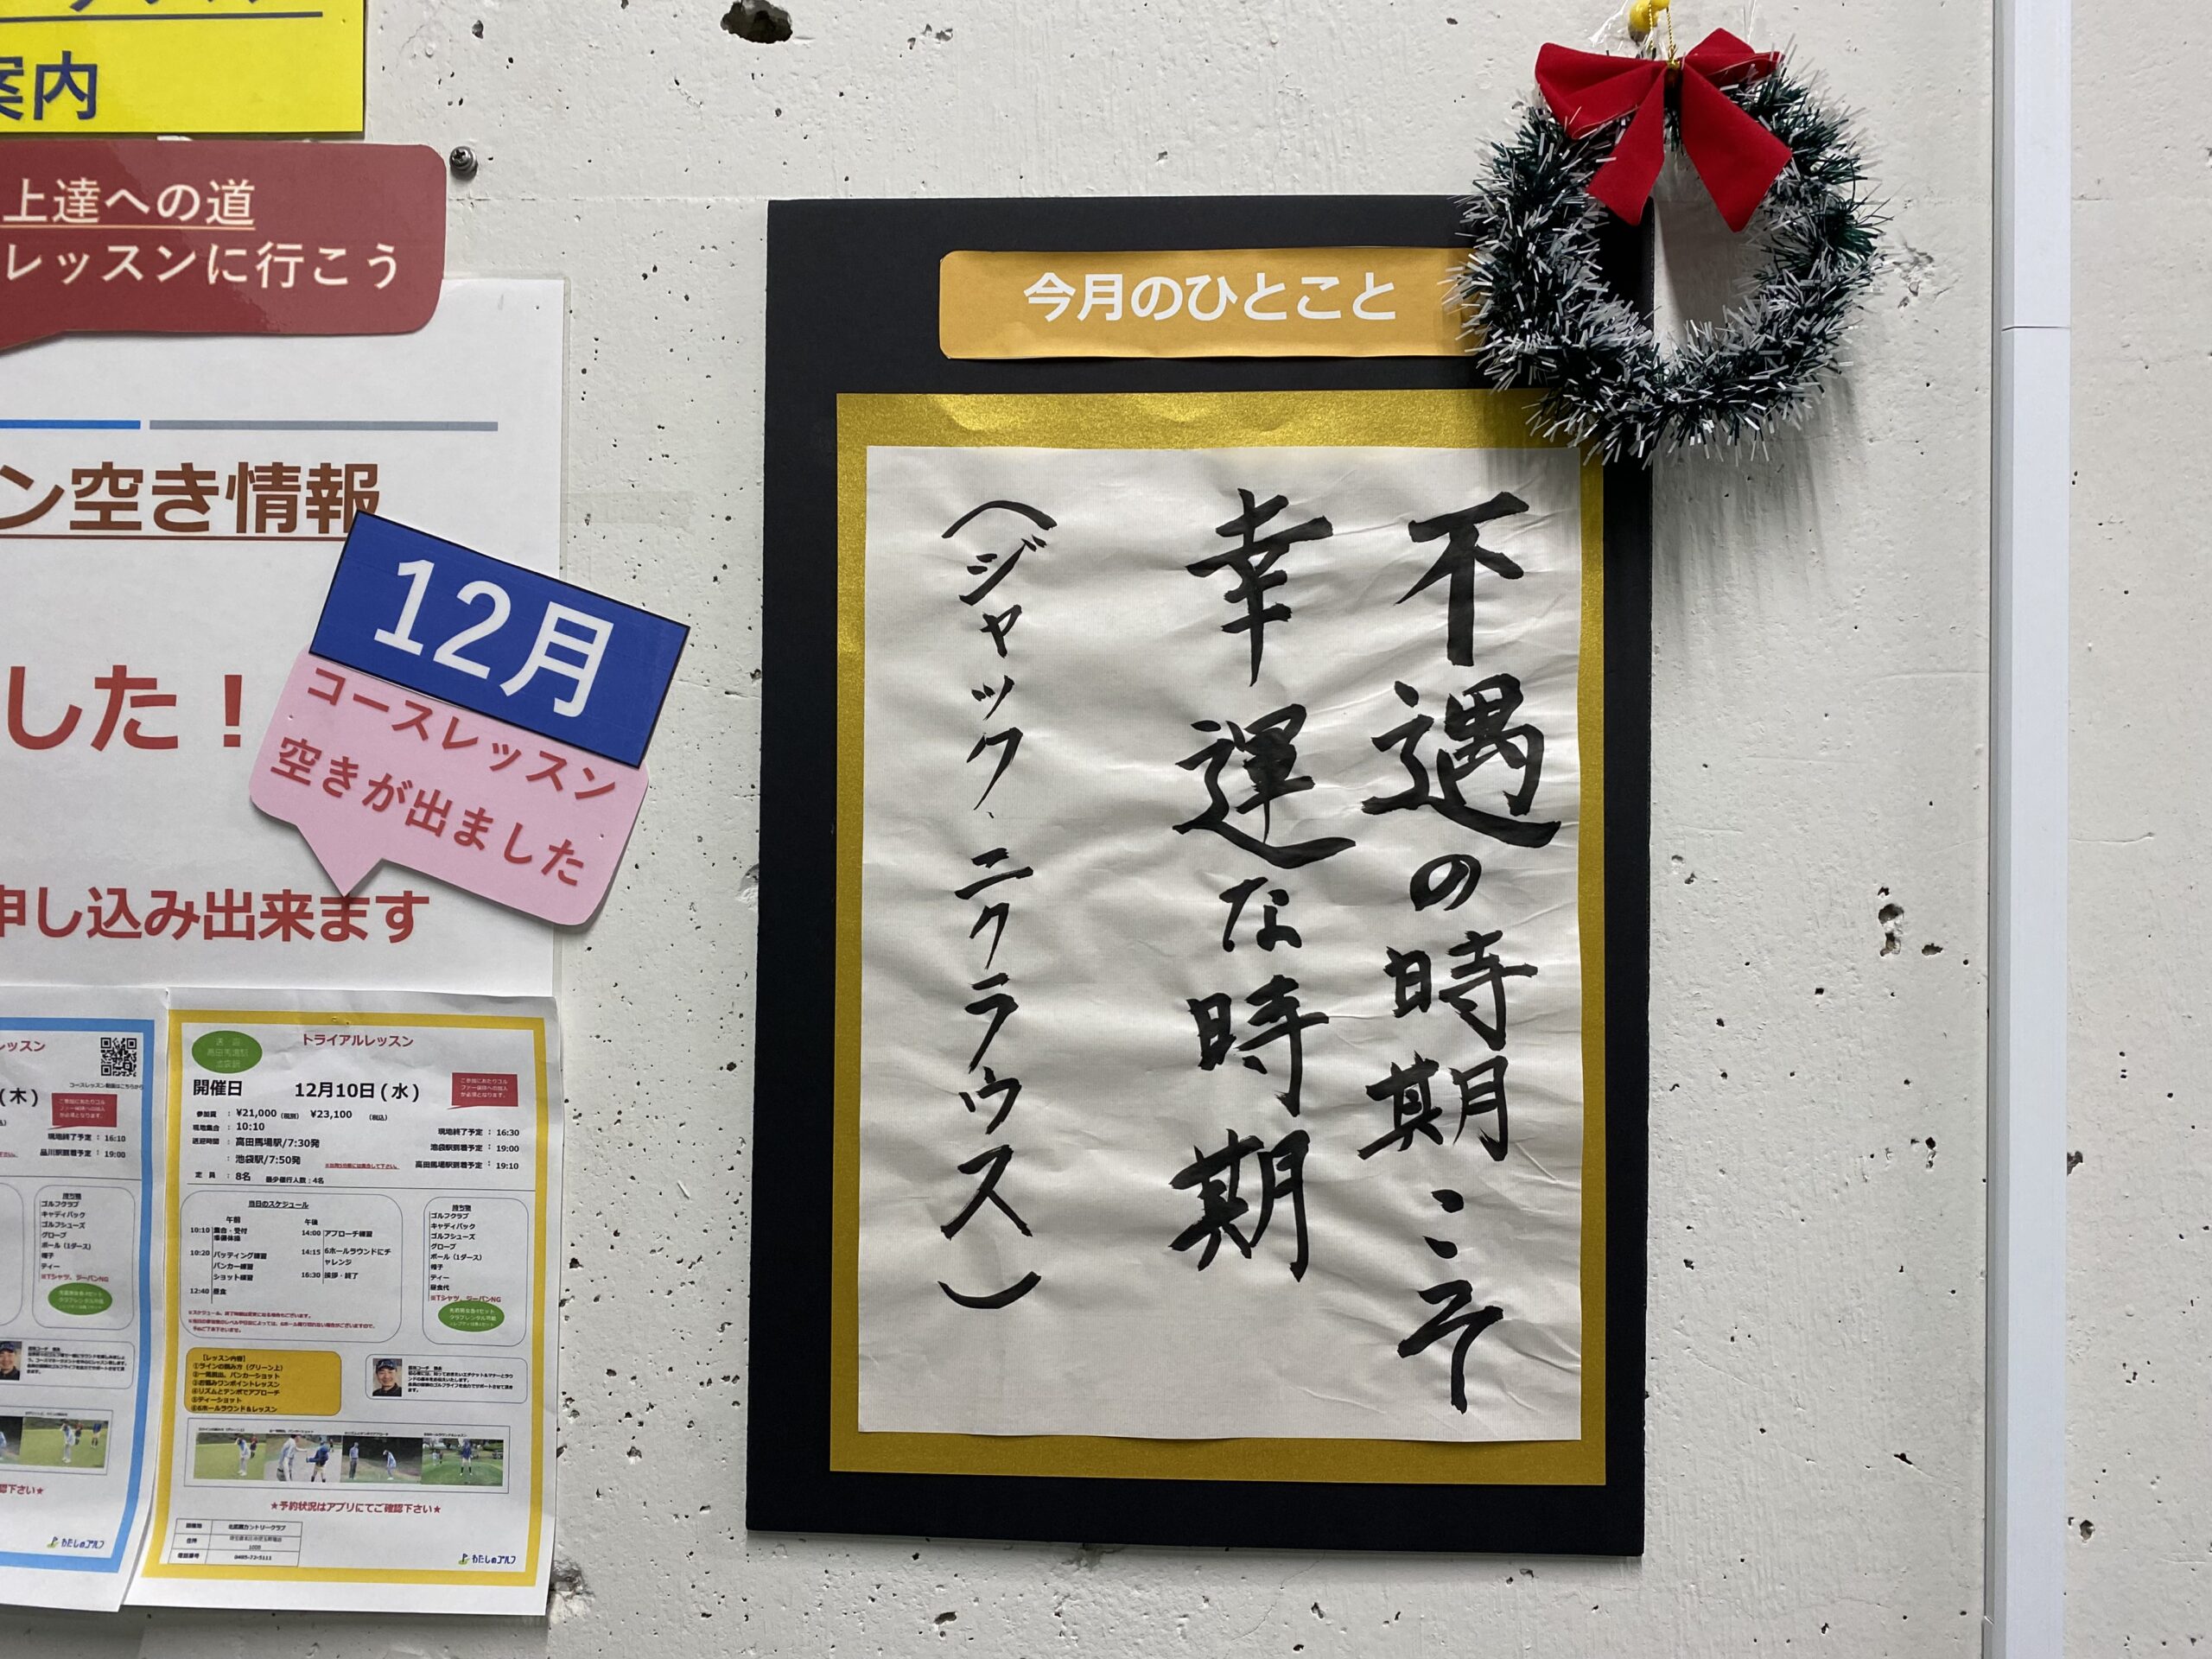 案内
上達への道
レッスンに行こう
ン空き情報
した！
12月
コースレッスン
空きが出ました
申し込み出来ます
今月のひとこと
不遇の時期こそ
幸運な時期
（ジャック、ニクラウス）
レッスン
(木)
現地終了予定：16:10
品川駅到着予定：19:00
持ち物
ゴルフクラブ
キャディバック
ゴルフシューズ
グローブ
ボール（1ダース）
帽子
ティー
※Tシャツ、ジーパンNG
わたしのゴルフ
トライアルレッスン
開催日 12月10日(水)
参加費：¥21,000（税別） ¥23,100（税込）
現地集合：10:10
送迎時間：高田馬場駅/7:30発
：池袋駅/7:50発
定員：8名 最少催行人数：4名
現地終了予定：16:30
池袋駅到着予定：19:00
高田馬場駅到着予定：19:10
当日のスケジュール
午前
10:10 集合・受付
準備体操
10:20 パッティング練習
バンカー練習
ショット練習
12:40 昼食
午後
14:00 アプローチ練習
14:15 6ホールラウンドにチ
ャレンジ
16:30 挨拶・終了
持ち物
ゴルフクラブ
キャディバック
ゴルフシューズ
グローブ
ボール（1ダース）
帽子
ティー
昼食代
※Tシャツ、ジーパンNG
【レッスン内容】
①ラインの読み方（グリーン上）
②一発脱出、バンカーショット
③お悩みワンポイントレッスン
④リズムとテンポでアプローチ
⑤ティーショット
⑥6ホールラウンド&レッスン
★予約状況はアプリにてご確認下さい★
わたしのゴルフ